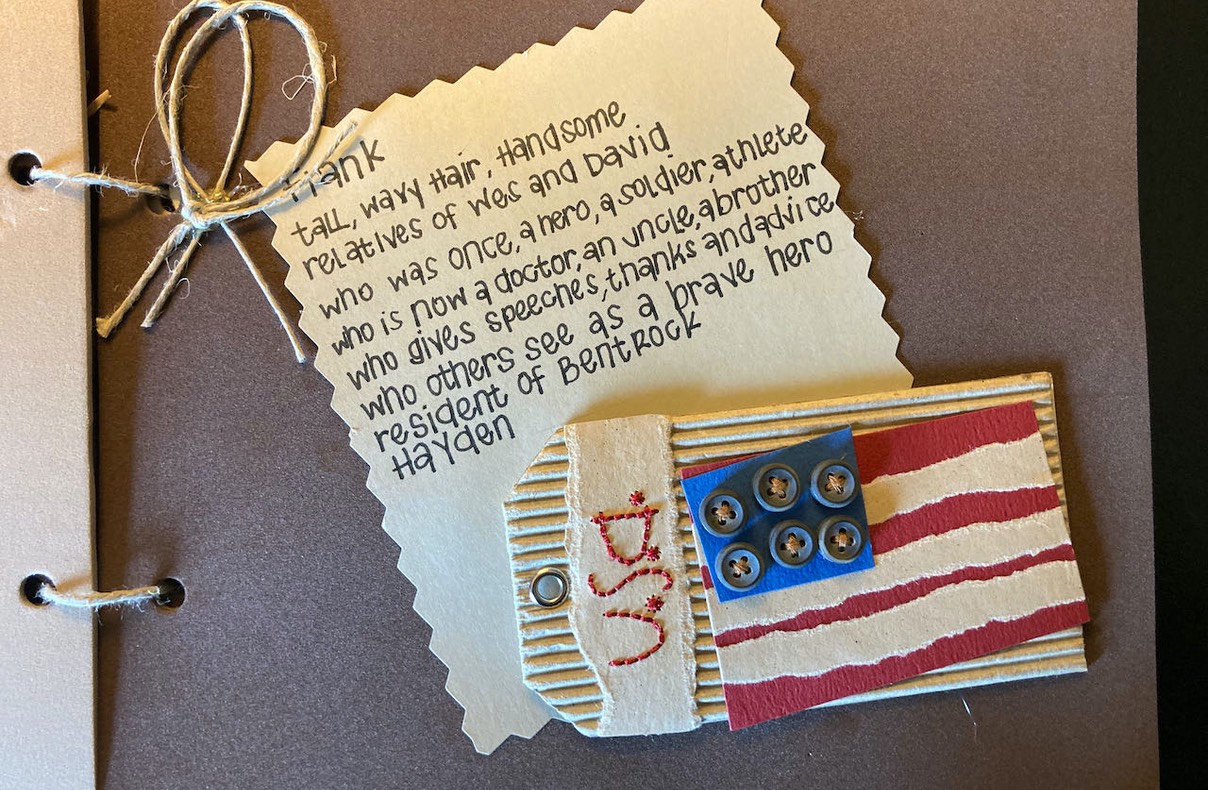 Hank
tall, wavy Hair, Handsome
relatives of Wes and David
who was once, a hero, a soldier, athlete
who is now a doctor, an uncle, a brother
who gives speeches, thanks and advice
who others see as a brave hero
resident of Bentrock
Hayden
U.S.A.